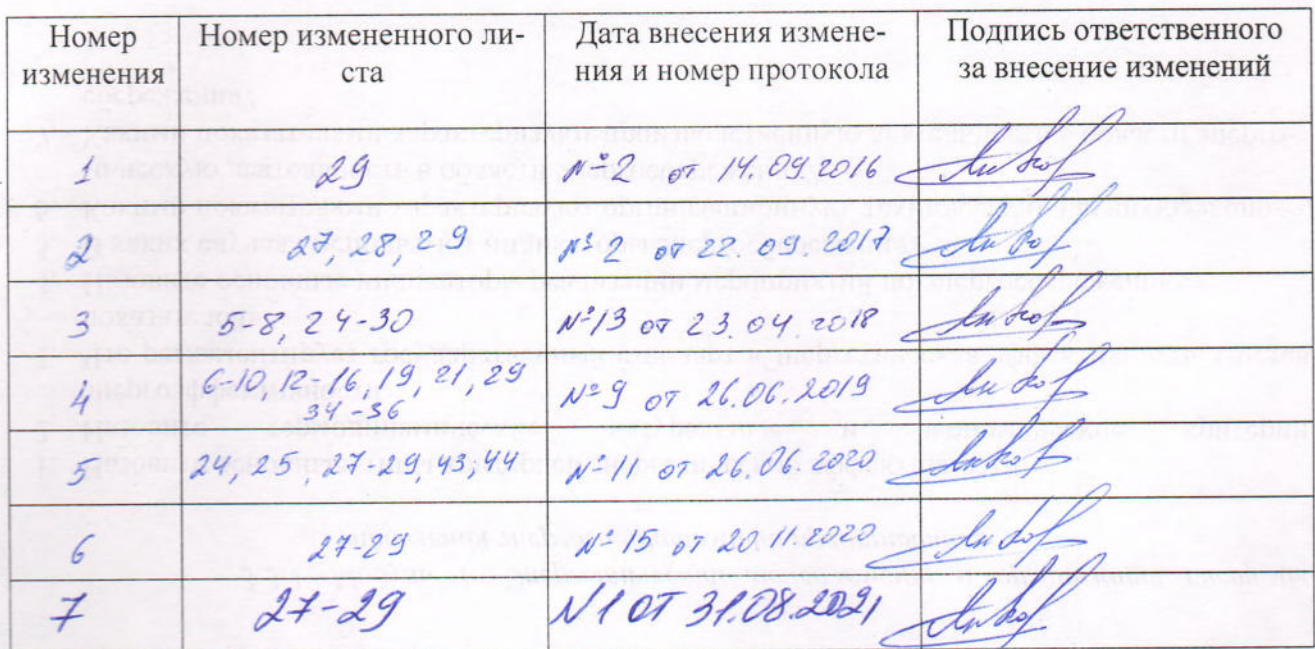 Номер изменения | Номер измененного ли- | Дата внесения измене- | Подпись ответственного
изменения | ста | ния и номер протокола | за внесение изменений
1 | 29 | №2 от 14.09.2016
2 | 27, 28, 29 | №2 от 22.09.2017
3 | 5-8, 24-30 | №13 от 23.04.2018
4 | 6-10, 12-16, 19, 21, 29 | №9 от 26.06.2019
34,-36
5 | 24, 25, 27-29, 43, 44 | №11 от 26.06.2020
6 | 27-29 | №15 от 20.11.2020
7 | 27-29 | N1 от 31.08.2021